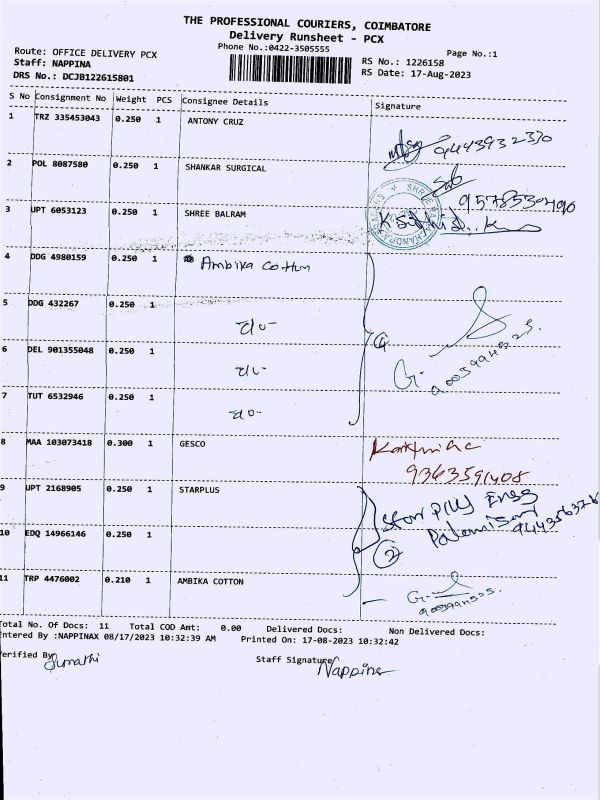 THE PROFESSIONAL COURIERS, COIMBATORE
Delivery Runsheet - PCX
Phone No.:0422-3505555
Page No.:1
Route: OFFICE DELIVERY PCX
Staff: NAPPINA
DRS No.: DCJB122615801
RS No.: 1226158
RS Date: 17-Aug-2023
S No Consignment No Weight PCS Consignee Details Signature
1 TRZ 335453043 0.250 1 ANTONY CRUZ
2 POL 8087580 0.250 1 SHANKAR SURGICAL
3 UPT 6053123 0.250 1 SHREE BALRAM
4 DDG 4980159 0.250 1 Ambika Cotton
5 DDG 432267 0.250 1
6 DEL 901355048 0.250 1
7 TUT 6532946 0.250 1
8 MAA 103073418 0.300 1 GESCO
9363591408
9 UPT 2168905 0.250 1 STARPLUS
10 EDQ 14966146 0.250 1
11 TRP 4476002 0.210 1 AMBIKA COTTON
Total No. Of Docs: 11 Total COD Amt: 0.00 Delivered Docs: Non Delivered Docs:
Entered By :NAPPINAX 08/17/2023 10:32:39 AM Printed On: 17-08-2023 10:32:42
Verified By
Staff Signature Nappina